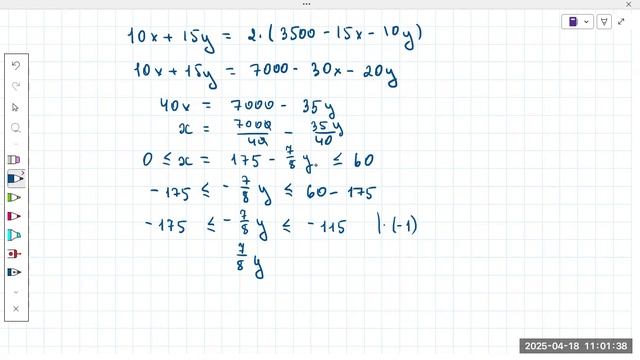 10x + 15y = 2·(3500 - 15x - 10y)
10x + 15y = 7000 - 30x - 20y
40x = 7000 - 35y
x = 7000/40 - 35y/40
0 ≤ x = 175 - 7/8 y. ≤ 60
-175 ≤ - 7/8 y ≤ 60 - 175
-175 ≤ - 7/8 y ≤ -115 |·(-1)
7/8 y
2025-04-18 11:01:38